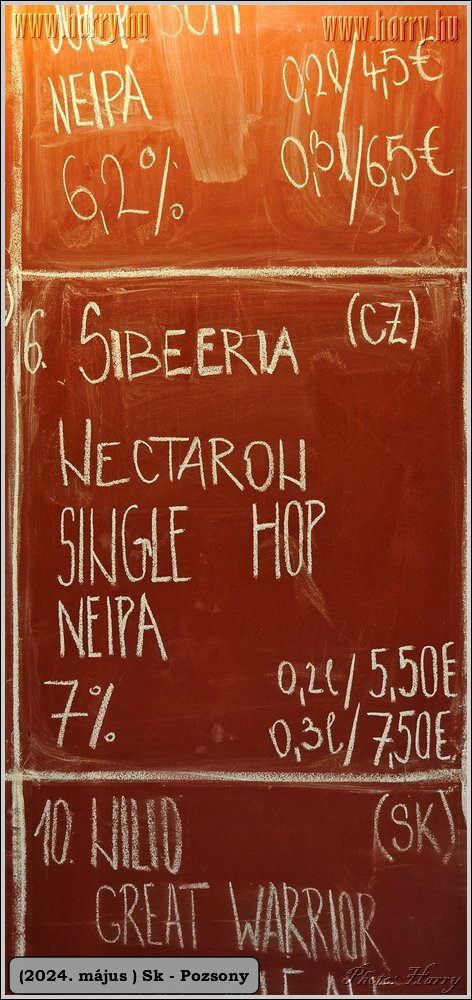 www.harry.hu www.harry.hu
NEIPA 0,2l/4,5€
6,2% 0,3l/6,5€
6. SIBEERIA (CZ)
NECTARON
SINGLE HOP
NEIPA
7% 0,2l/5,50€
0,3l/7,50€
10. WILD (SK)
GREAT WARRIOR
(2024. május ) Sk - Pozsony Photo: Harry